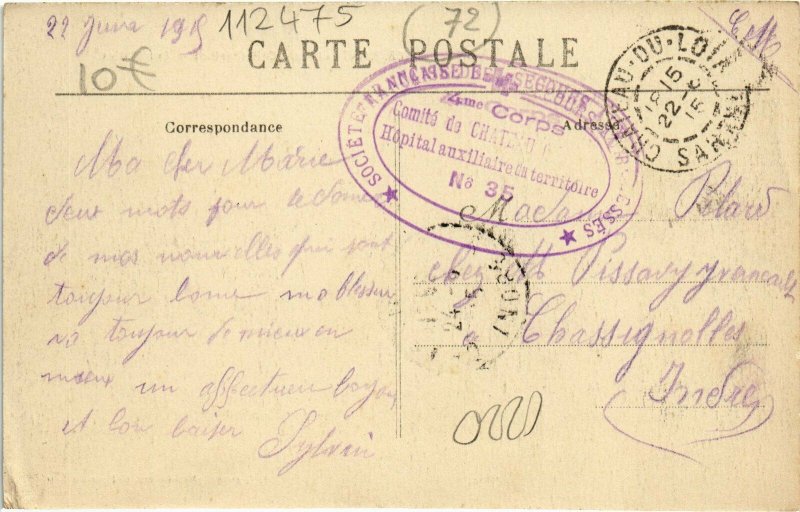 22 Juin 1915
112475
(72)
F.M
10€
CARTE POSTALE
CHATEAU-DU-LOIR
18 15
22 - 6
15
SARTHE
SOCIÉTÉ FRANÇAISE DE SECOURS AUX BLESSÉS
4me Corps
Comité de CHATEAU
Hôpital auxiliaire du territoire
No 35
Correspondance
Adresse
Ma cher Marie
deux mots pour te donné
de mes nouvelles qui sont
toujour bone ma blessur
va toujour de mieux en
mieux un affectueu
et bon baiser
Sylvain
Madame Pelard
chez Mr Pissavy yvernault
a Chassignolles
Indre
24